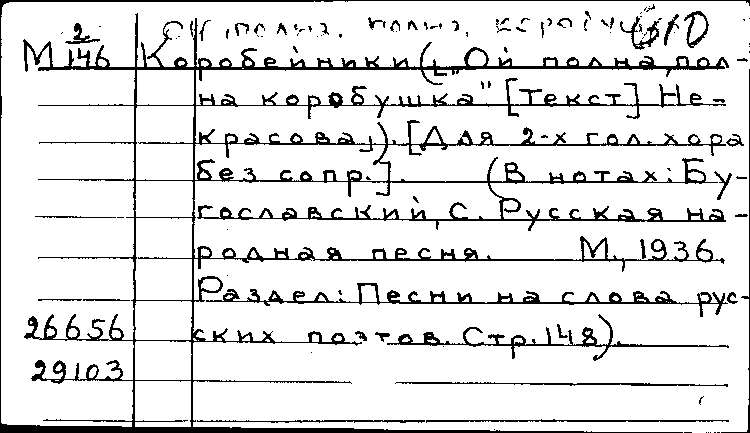 Ой, полна, полна, коробушка
М 2/146 Коробейники („Ой полна, пол-
на коробушка" [Текст] Не-
красова). [Для 2-х гол. хора
без сопр.]. (В нотах: Бу-
гославский, С. Русская на-
родная песня. М., 1936.
Раздел: Песни на слова рус-
26656 ских поэтов. Стр. 148).
29103